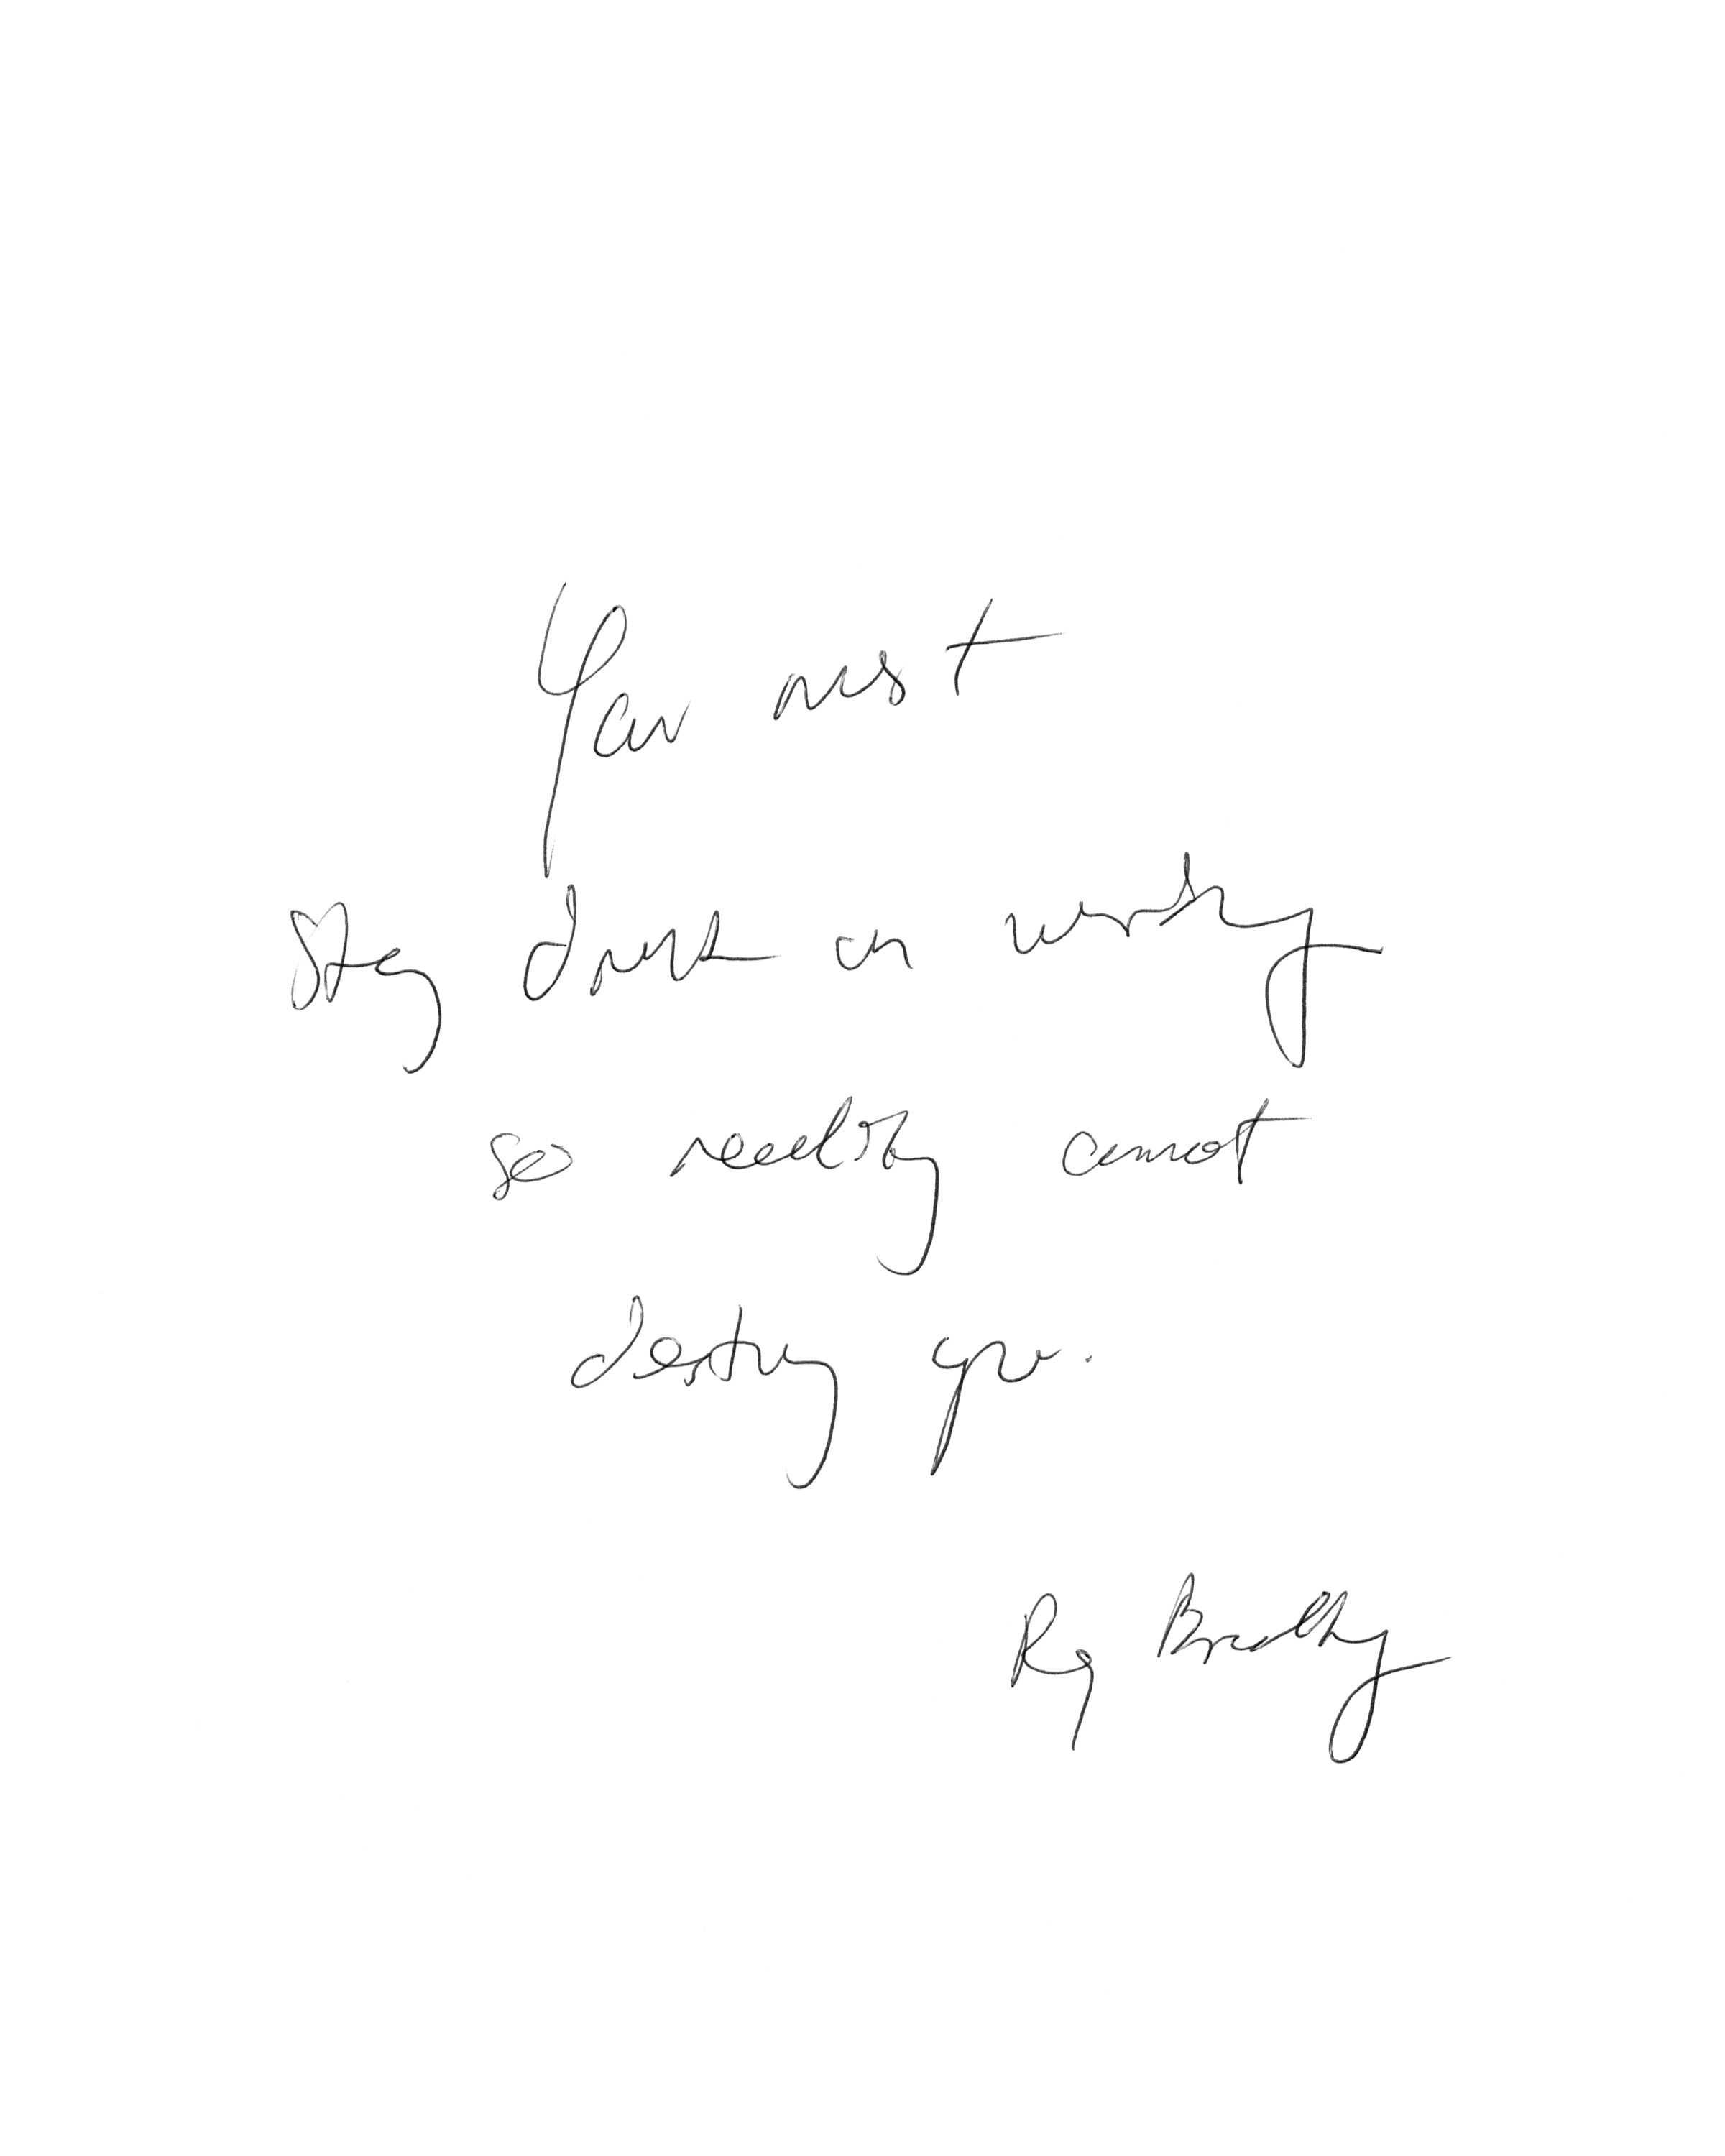 You must
stay drunk on writing
so reality cannot
destroy you.
Ray Bradbury